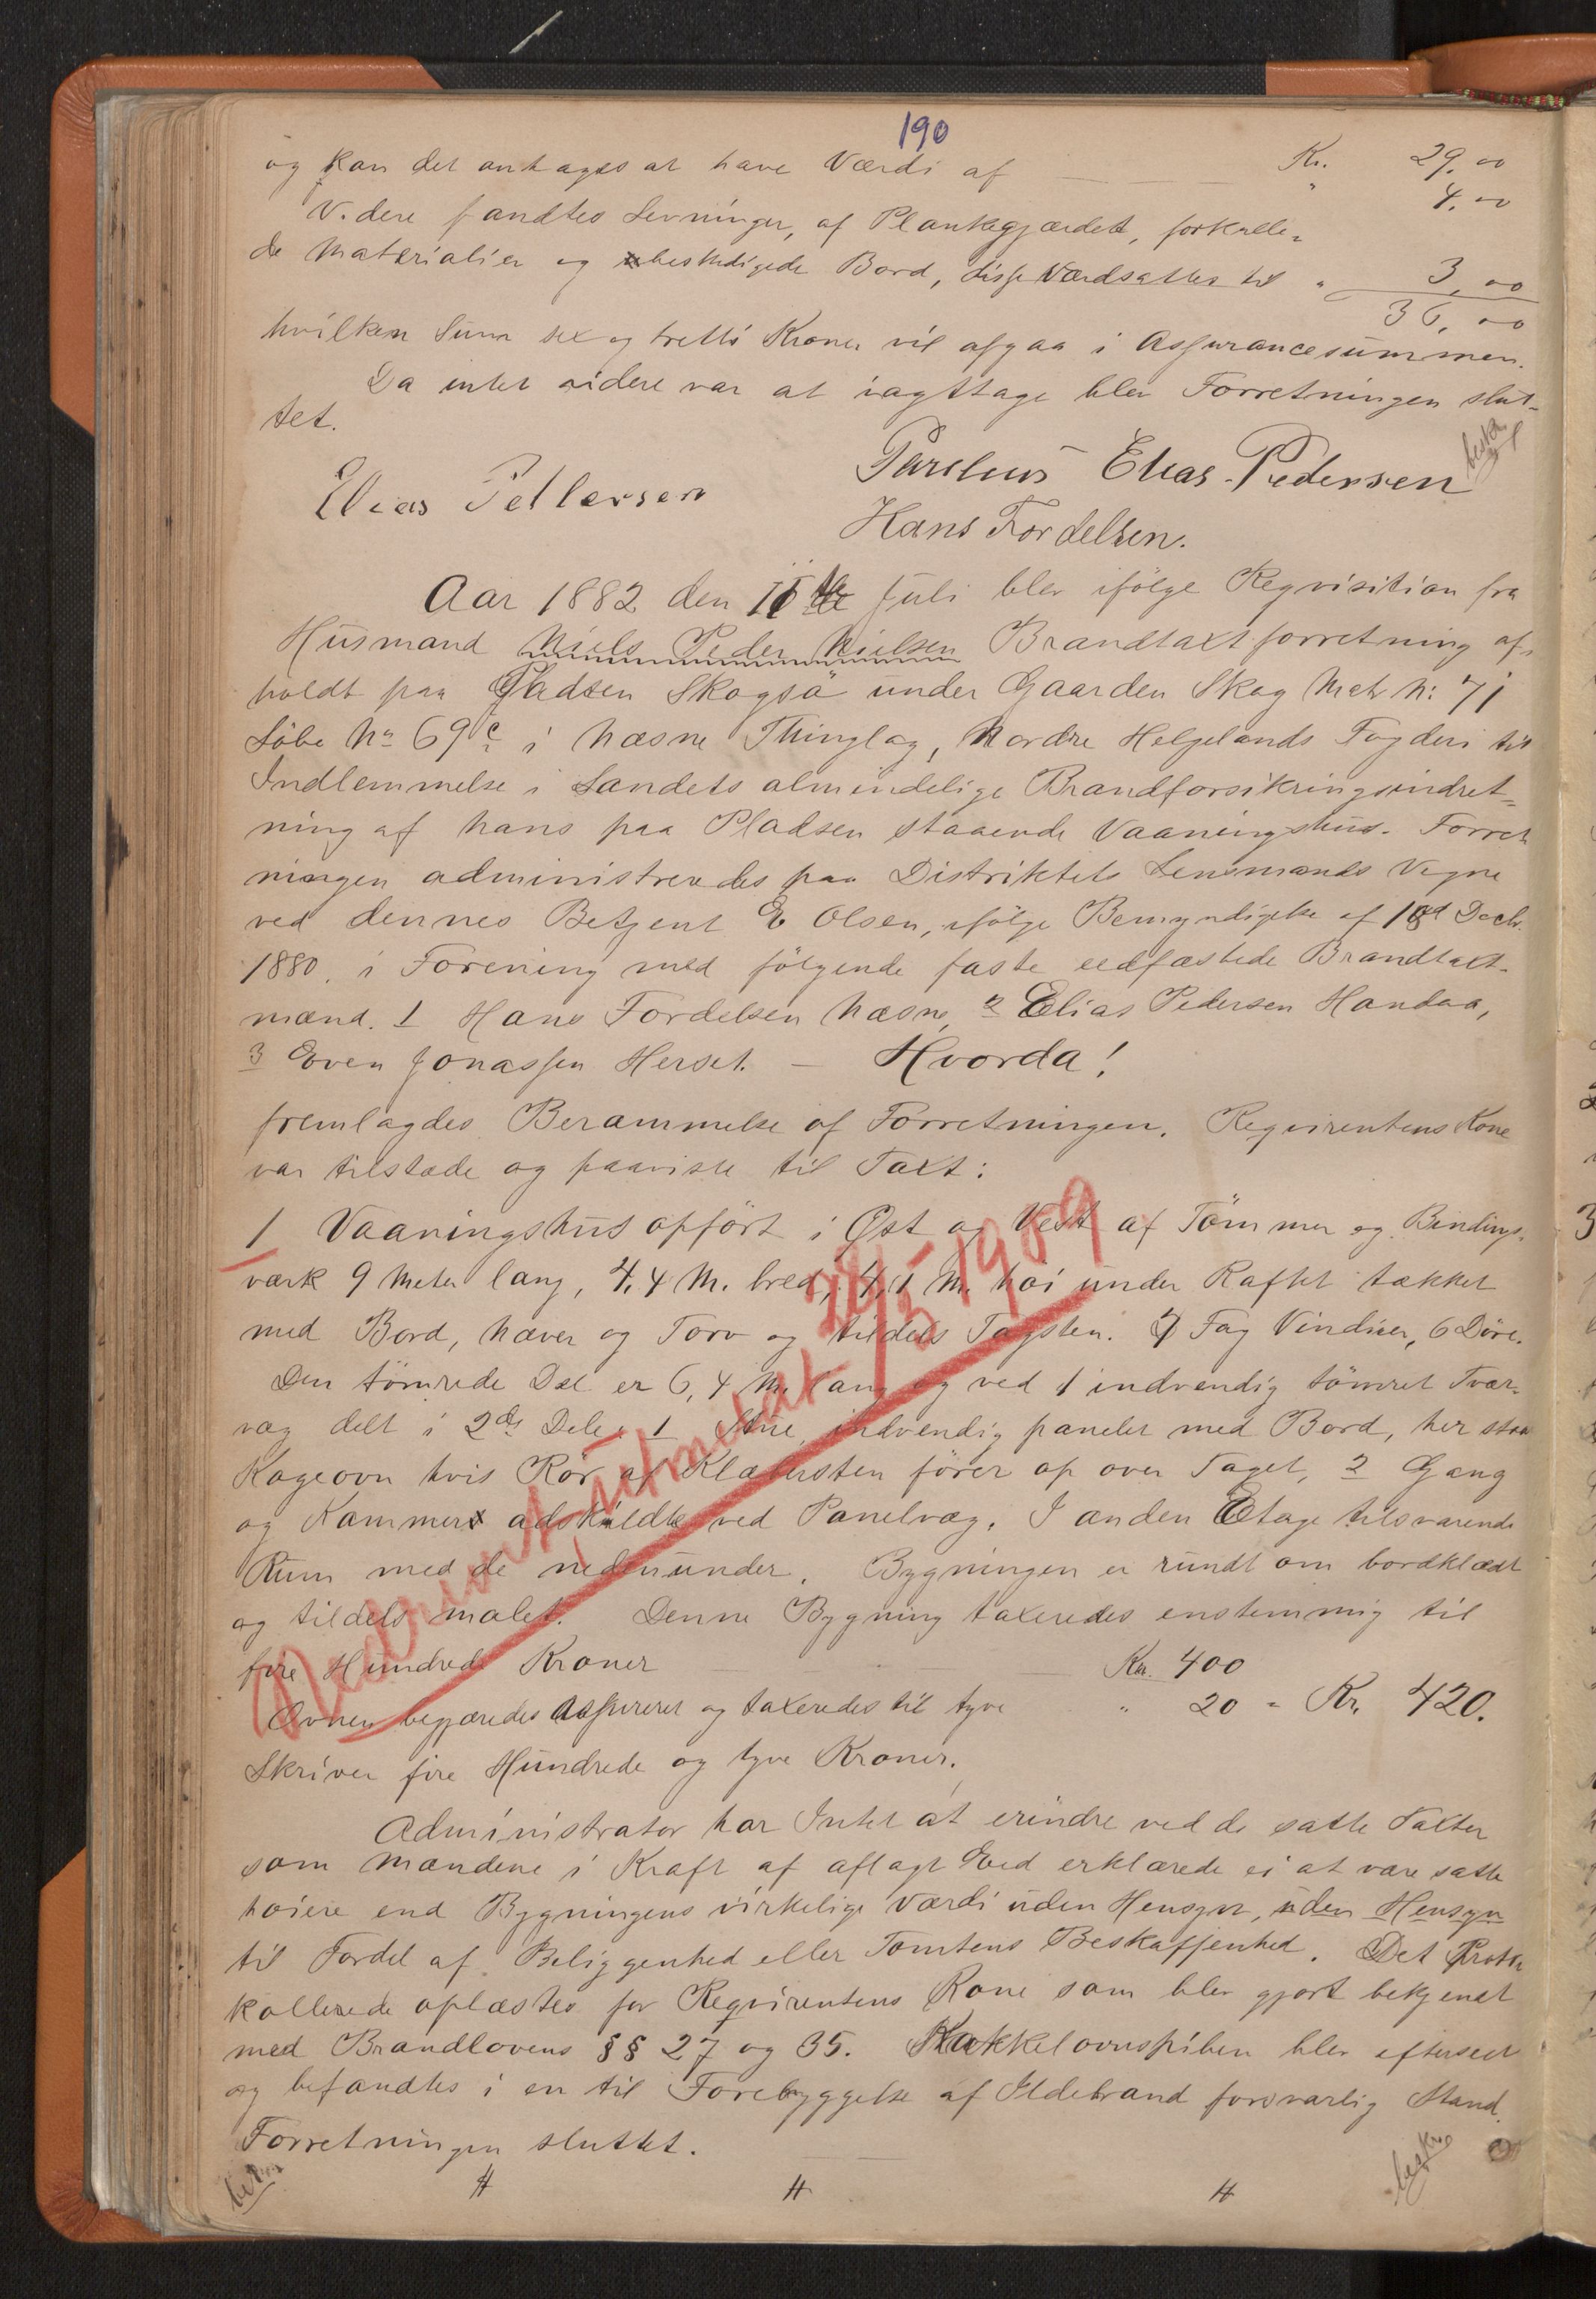 190
og kan det antages at have Værdi af Kr. 29.00
" 4.00
V.dere fandtes Levninger, af Plankegjærdet, forkulle=
de Materialier og ubeskadigede Bord, disse Værdsattes til " 3.00
36.00
hvilken Sum sex og tretti Kroner vil afgaa i Assurancesummen.
Da intet videre var at iagttage blev Forretningen slut=
tet.
Elias Pettersen
Elias Pedersen
Hans Fordelsen.
Aar 1882 den Juli blev ifølge Reqvisition fra
Husmand Niels Peder Nielsen Brandtaxtforretning af=
holdt paa Pladsen Skogsö under Gaarden Skog Matr No: 71
Löbe No 69c i Næsne Thinglag, Nordre Helgelands Fogderi til
Indlemmelse i Landets almindelige Brandforsikringsindret=
ning af hans paa Pladsen staaende Vaaningshus. Forret
ningen administreredes paa Distriktets Lensmands Vegne
ved dennes Betjent E Olsen, ifølge Bemyndigelse af 18d Decbr.
1880. i Forening med følgende faste eedfæstede Brandtaxt-
mænd. 1 Hans Fordelsen Næsne, 2 Elias Pedersen Handaa,
3 Even Jonassen Herset. — Hvorda!
fremlagdes Berammelse af Forretningen. Reqvirentens Kone
var tilstæde og paaviste til Taxt:
1 Vaaningshus opfört i Øst og Vest af Tömmer og Bindings-
værk 9 Meter lang, 4,4 M. bred, 4,1 M. høi under Raftet tækket
med Bord, Næver og Torv og tildels Tagsten. 7 Fag Vinduer, 6 Döre.
Den tömrede Del er 6,4 M. lang og ved 1 indvendig tömret Tvær-
væg delt i 2de Dele: 1 Stue, indvendig panelet med Bord, her staar
Kogeovn hvis Rör af Klæbersten förer op over Taget, 2 Gang
og Kammers adskildte ved Panelvæg. I anden Etage tilsvarende
Rum med de nedenunder. Bygningen er rundt om bordklædt
og tildels malet. Denne Bygning taxeredes enstemmig til
fire Hundrede Kroner Kr. 400
Ovnen begjæredes Assureret og taxeredes til tyve " 20 = Kr. 420.
Skriver fire Hundrede og tyve Kroner.
Administrator har Intet at erindre ved de satte Taxter
som Mændene i Kraft af aflagt Eed erklærede ei at være satte
høiere end Bygningens virkelige Værdi uden Hensyn, uden Hensyn
til Fordel af Beliggenhed eller Tomtens Beskaffenhed. Det Proto
kollerede oplæstes for Reqvirentens Kone som blev gjort bekjendt
med Brandlovens §§ 27 og 35. Kakkelovnspiben blev efterseet
og befandtes i en til Forebyggelse af Ildebrand forsvarlig Stand.
Forretningen sluttet.